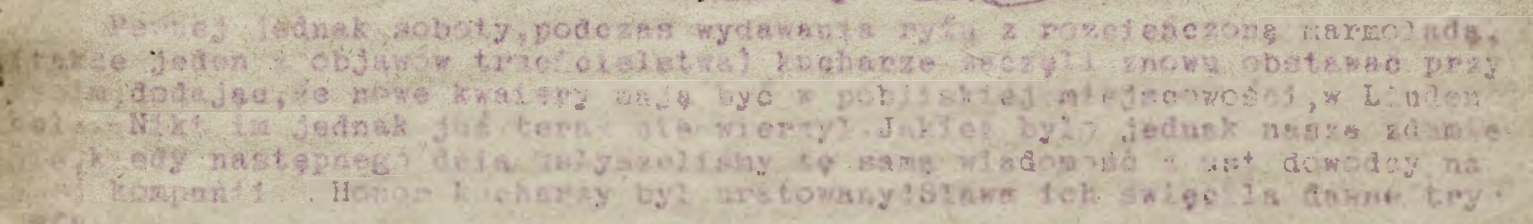 Pewnej jednak soboty,podczas wydawania ryżu z rozcieńczoną marmoladą,
(także jeden z objawów trzeciolelstwa) kucharze zaczęli znowu obstawać przy
dodając,że nowe kwatery mają być w pobliskiej miejscowości,w Linden
Nikt im jednak już teraz nie wierzył.Jakież było jednak nasze zdumie
kiedy następnego dnia usłyszeliśmy tę samą wiadomość z ust dowódcy na
kompanii. Honor kucharzy był uratowany!Sława ich święciła dawne try